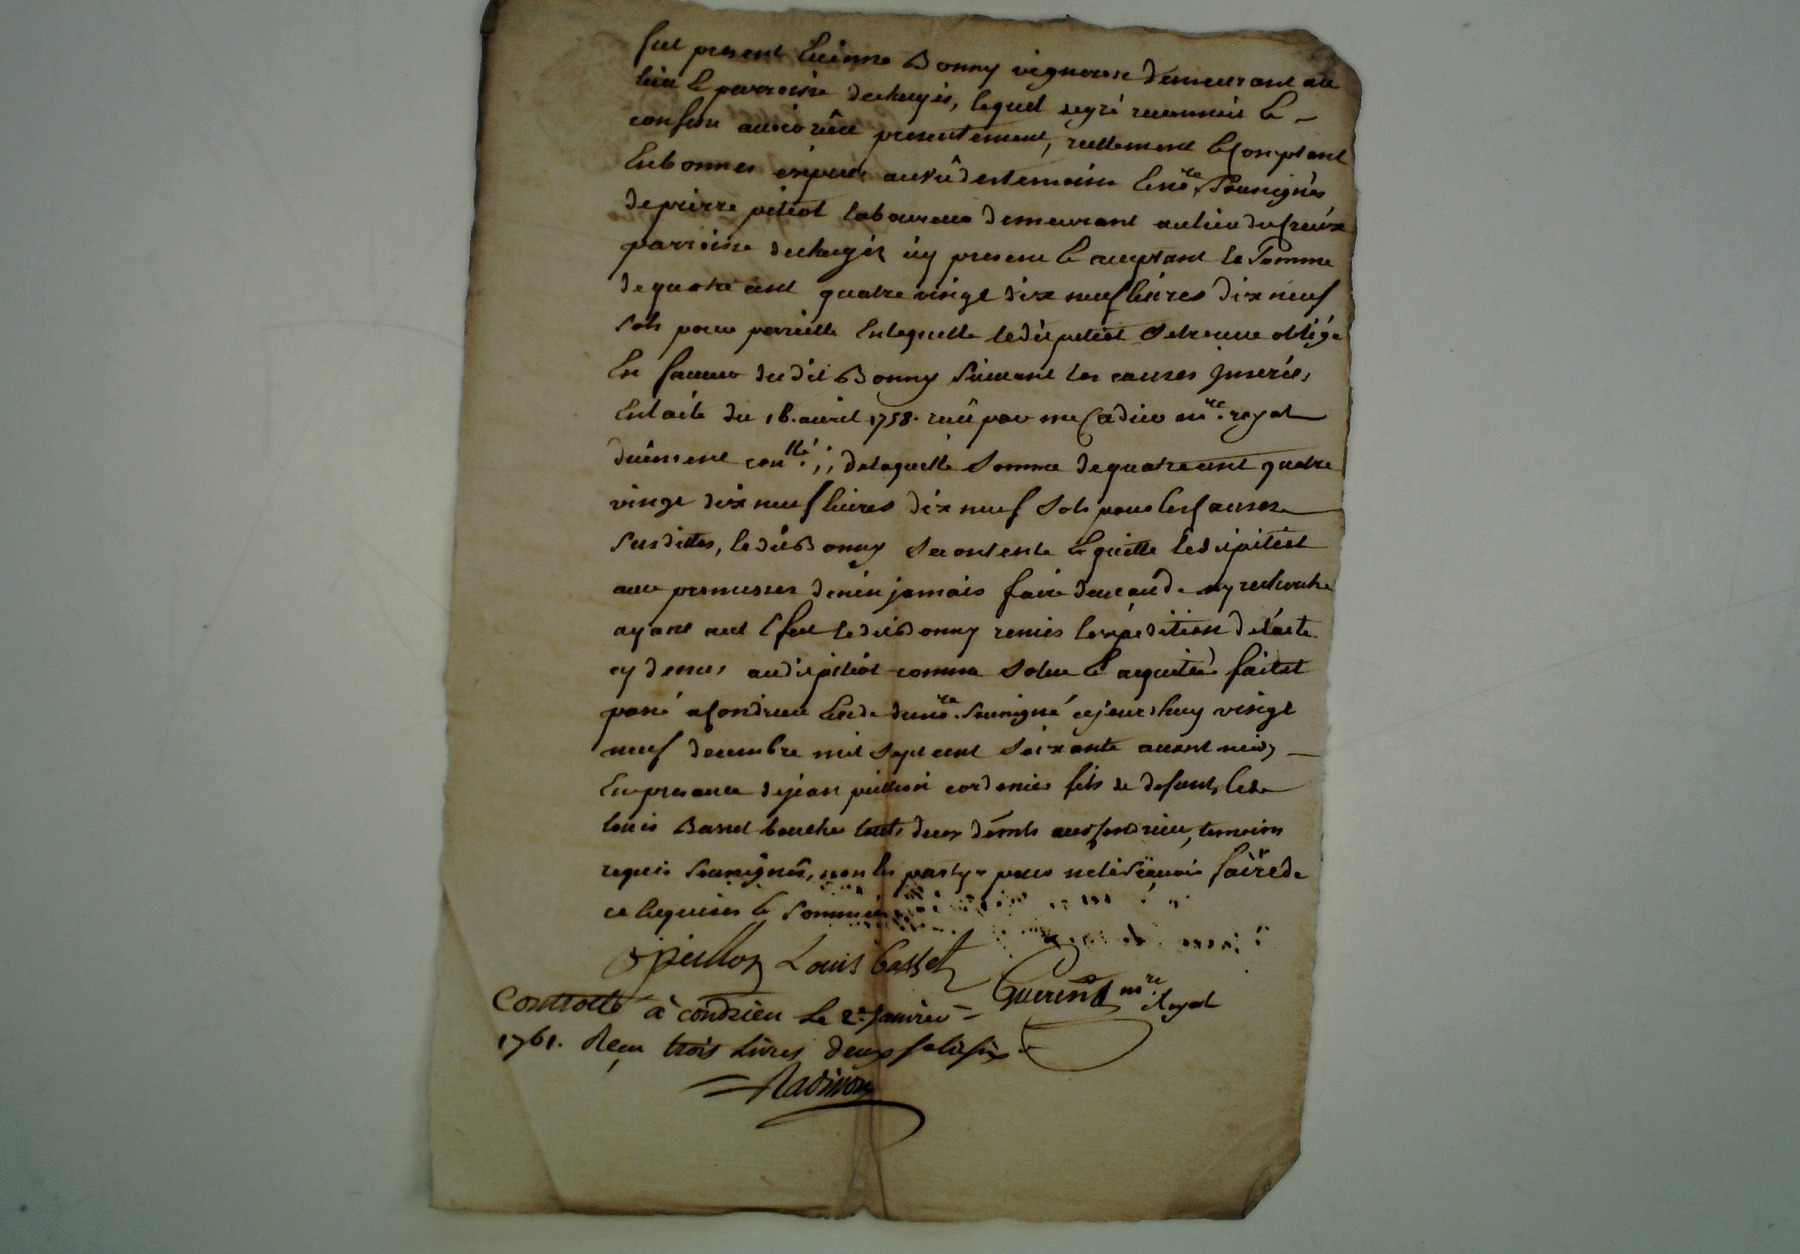 fut present Etienne Bonny vigneron demeurant au
lieu & parroisse dechuyés, lequel degré reconnoit &
confesse avoir rêcu presentement, réellement & Comptant
En bonnes espèces au vû des temoins & no.re Soussignés
de pierre pitiot laboureur demeurant au lieu du Creux
parroisse dechuyés icy present & acceptant la Somme
de quatre cent quatre vingt dix neuf livres dix neuf
sols pour pareille En laquelle ledit pitiot Setrouve obligé
En faveur dudit Bonny Suivant les causes Jnserées
En l'acte du 16. avril 1758. reçû par me Cadier no.re royal
duëment con.llé ;, de laquelle Somme de quatre cent quatre
vingt dix neuf livres dix neuf Sols pour les Causes
Susdittes, ledit Bonny Secontente & quitte ledit pitiot
avec promesses denen jamais faire demande ny recherche
ayant aud Effet ledit Bonny remis l'expedition de l'acte
cy dessus audit pitiot comme Solue & acquitée fait et
passé a Condrieu Etude dunô.re Soussigné cejourdhuy vingt
neuf decembre mil Sept cent Soixante avant midy
En presence de jean peillon cordonnier fils de defunt, & de
louis Basset boucher touts deux dem.ts aud Condrieu, temoins
requis Soussignés, non les partyes pour ne le Scavoir faire de
ce Enquises & Sommées
Jpeillon Louis Basset
Guerin no.re Royal
Controllé à Condrieu le 2.e Janvier
1761. Reçu trois livres deux sols six